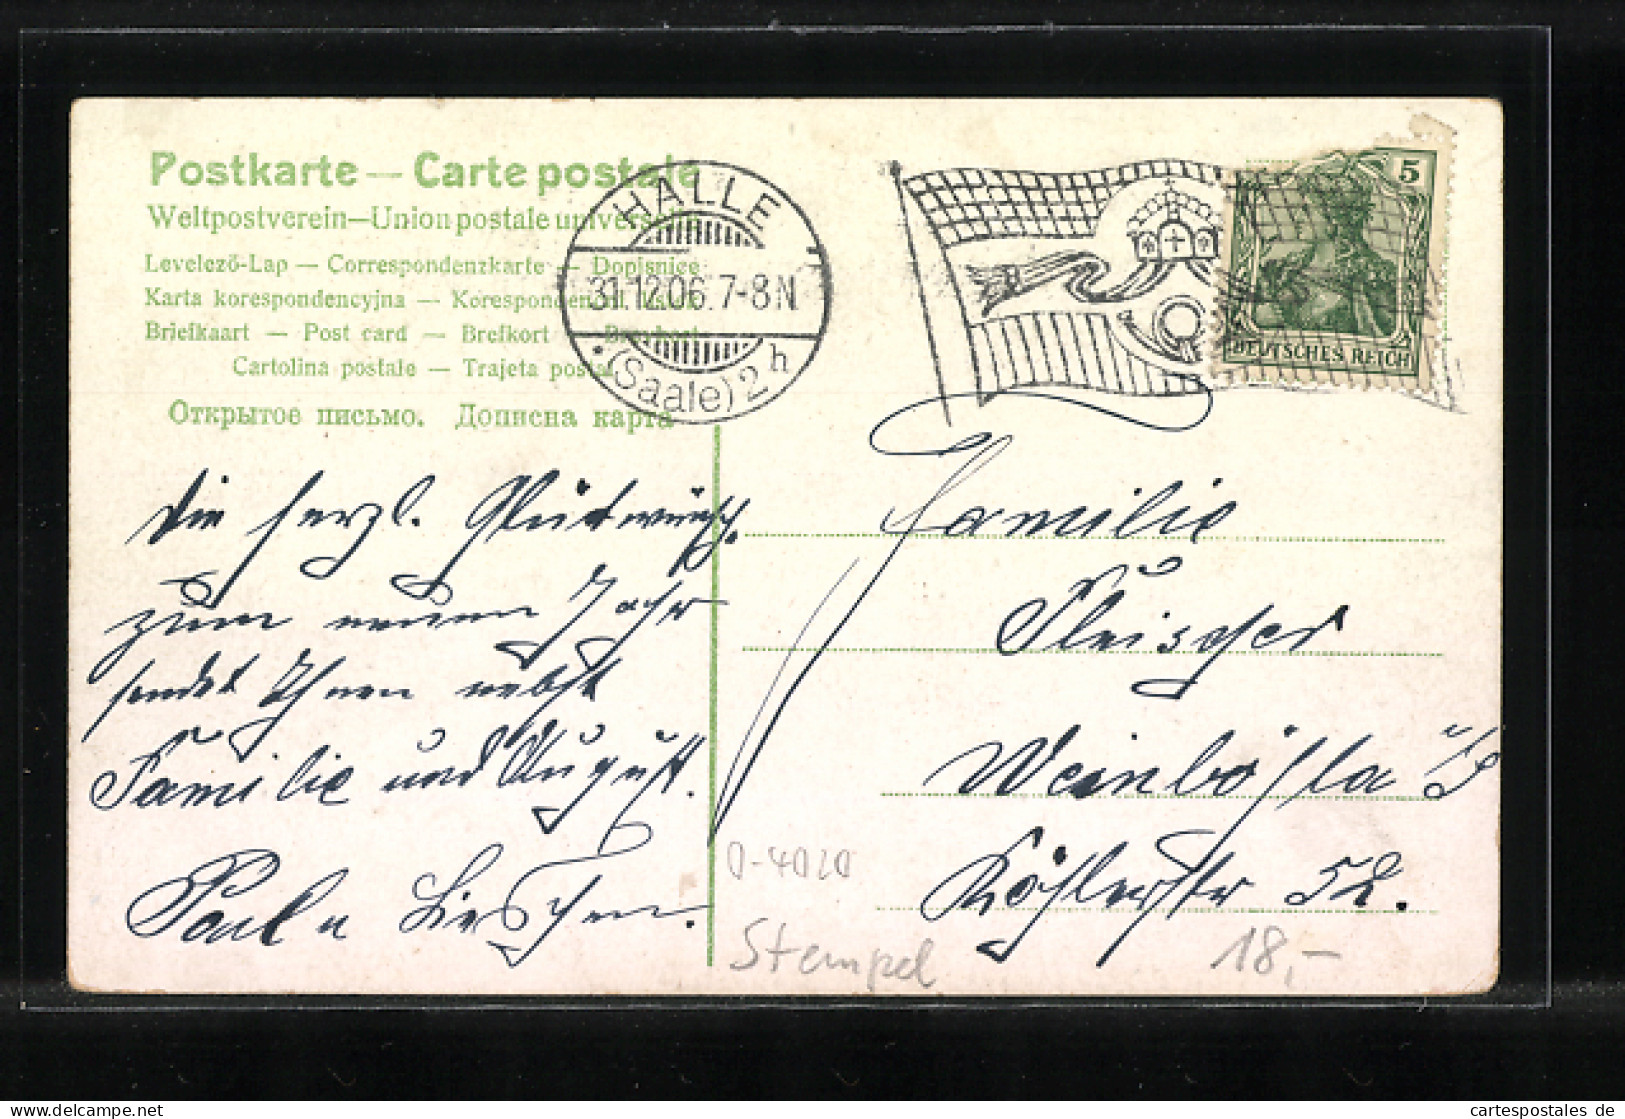 Postkarte — Carte postale
Weltpostverein—Union postale universelle
Levelező-Lap — Correspondenzkarte — Dopisnice
Karta korespondencyjna — Korespondenčni listek
Briefkaart — Post card — Brefkort — Brevkort
Cartolina postale — Trajeta postal
Открытое письмо. Дописна карта
HALLE
31.12.06.7-8N
*(Saale) 2 h
5
DEUTSCHES REICH
Die herzl. Glückwünsch.
zum neuen Jahr
sendet Ihnen nebst
Familie und August.
Paul u Lieschen.
Familie
Fleischer
Weinböhla
Köhlerstr 52.
0-4020
Stempel
18,-
cartespostales de